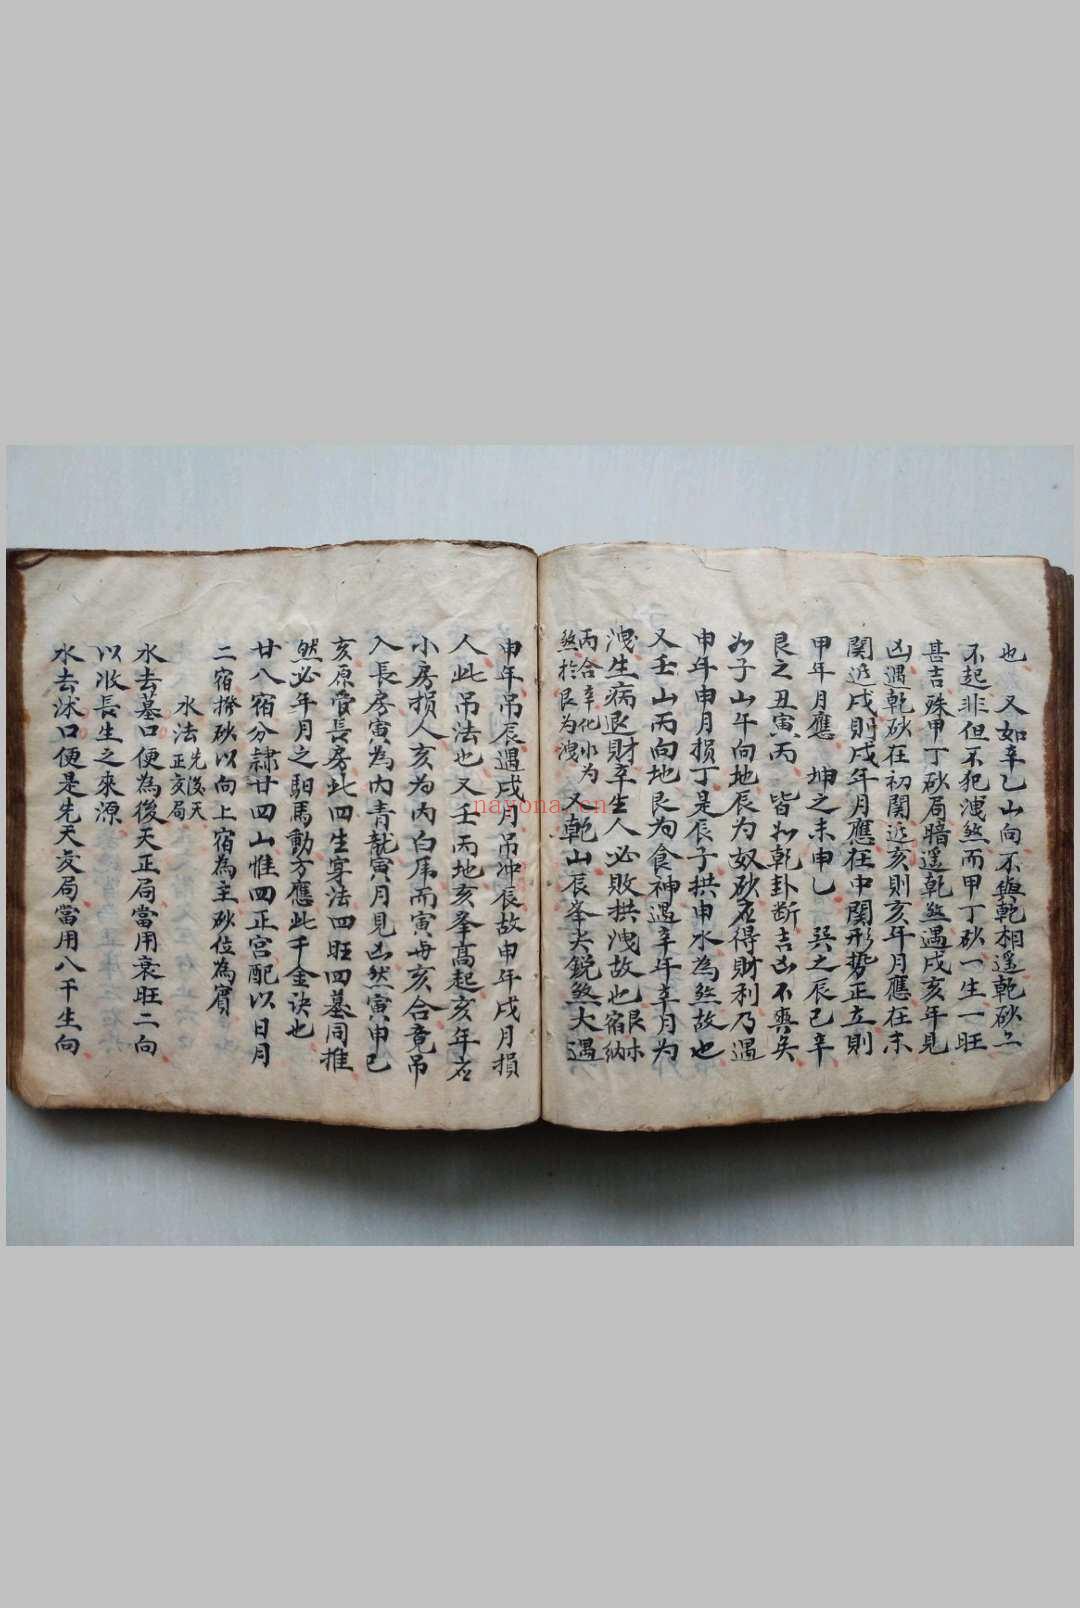 也　又如辛乙山向不與乾相遥乾砂亦
不起非但不犯洩煞而甲丁砂一生一旺
甚吉殊甲丁砂局暗遥乾煞遇戌亥年見
凶遇乾砂在初関近亥則亥年月應在未
関近戌則戌年月應在中関形勢正立則
甲年月應　坤之未申乙　巽之辰巳辛
艮之丑寅丙　皆如乾卦断吉凶不爽矣
如子山午向地辰为奴砂应得財利乃遇
申年申月損丁是辰子拱申水為煞故也
又壬山丙向地艮为食神遇辛年辛月为
洩生病退財辛生人必敗拱洩故也艮木宿納
丙合辛化水为煞於艮为洩　又乾山辰峯尖鋭煞大遇
申年吊辰遇戌月吊冲辰故申年戌月損
人此吊法也又壬丙地亥峯高起亥年应
小房損人亥为内白虎而寅毋亥合竟吊
入長房寅為内青龍寅月見凶然寅申巳
亥原管長房此四生穿法四旺四墓同推
然必年月之駟馬動方應此千金訣也
廿八宿分隷廿四山惟四正宫配以日月
二宿撥砂以向上宿為主砂位為賓
水法先後天正交局
水去墓口便為後天正局當用衰旺二向
以收長生之來源
水去沐口便是先天交局當用八干生向
nayona.cn